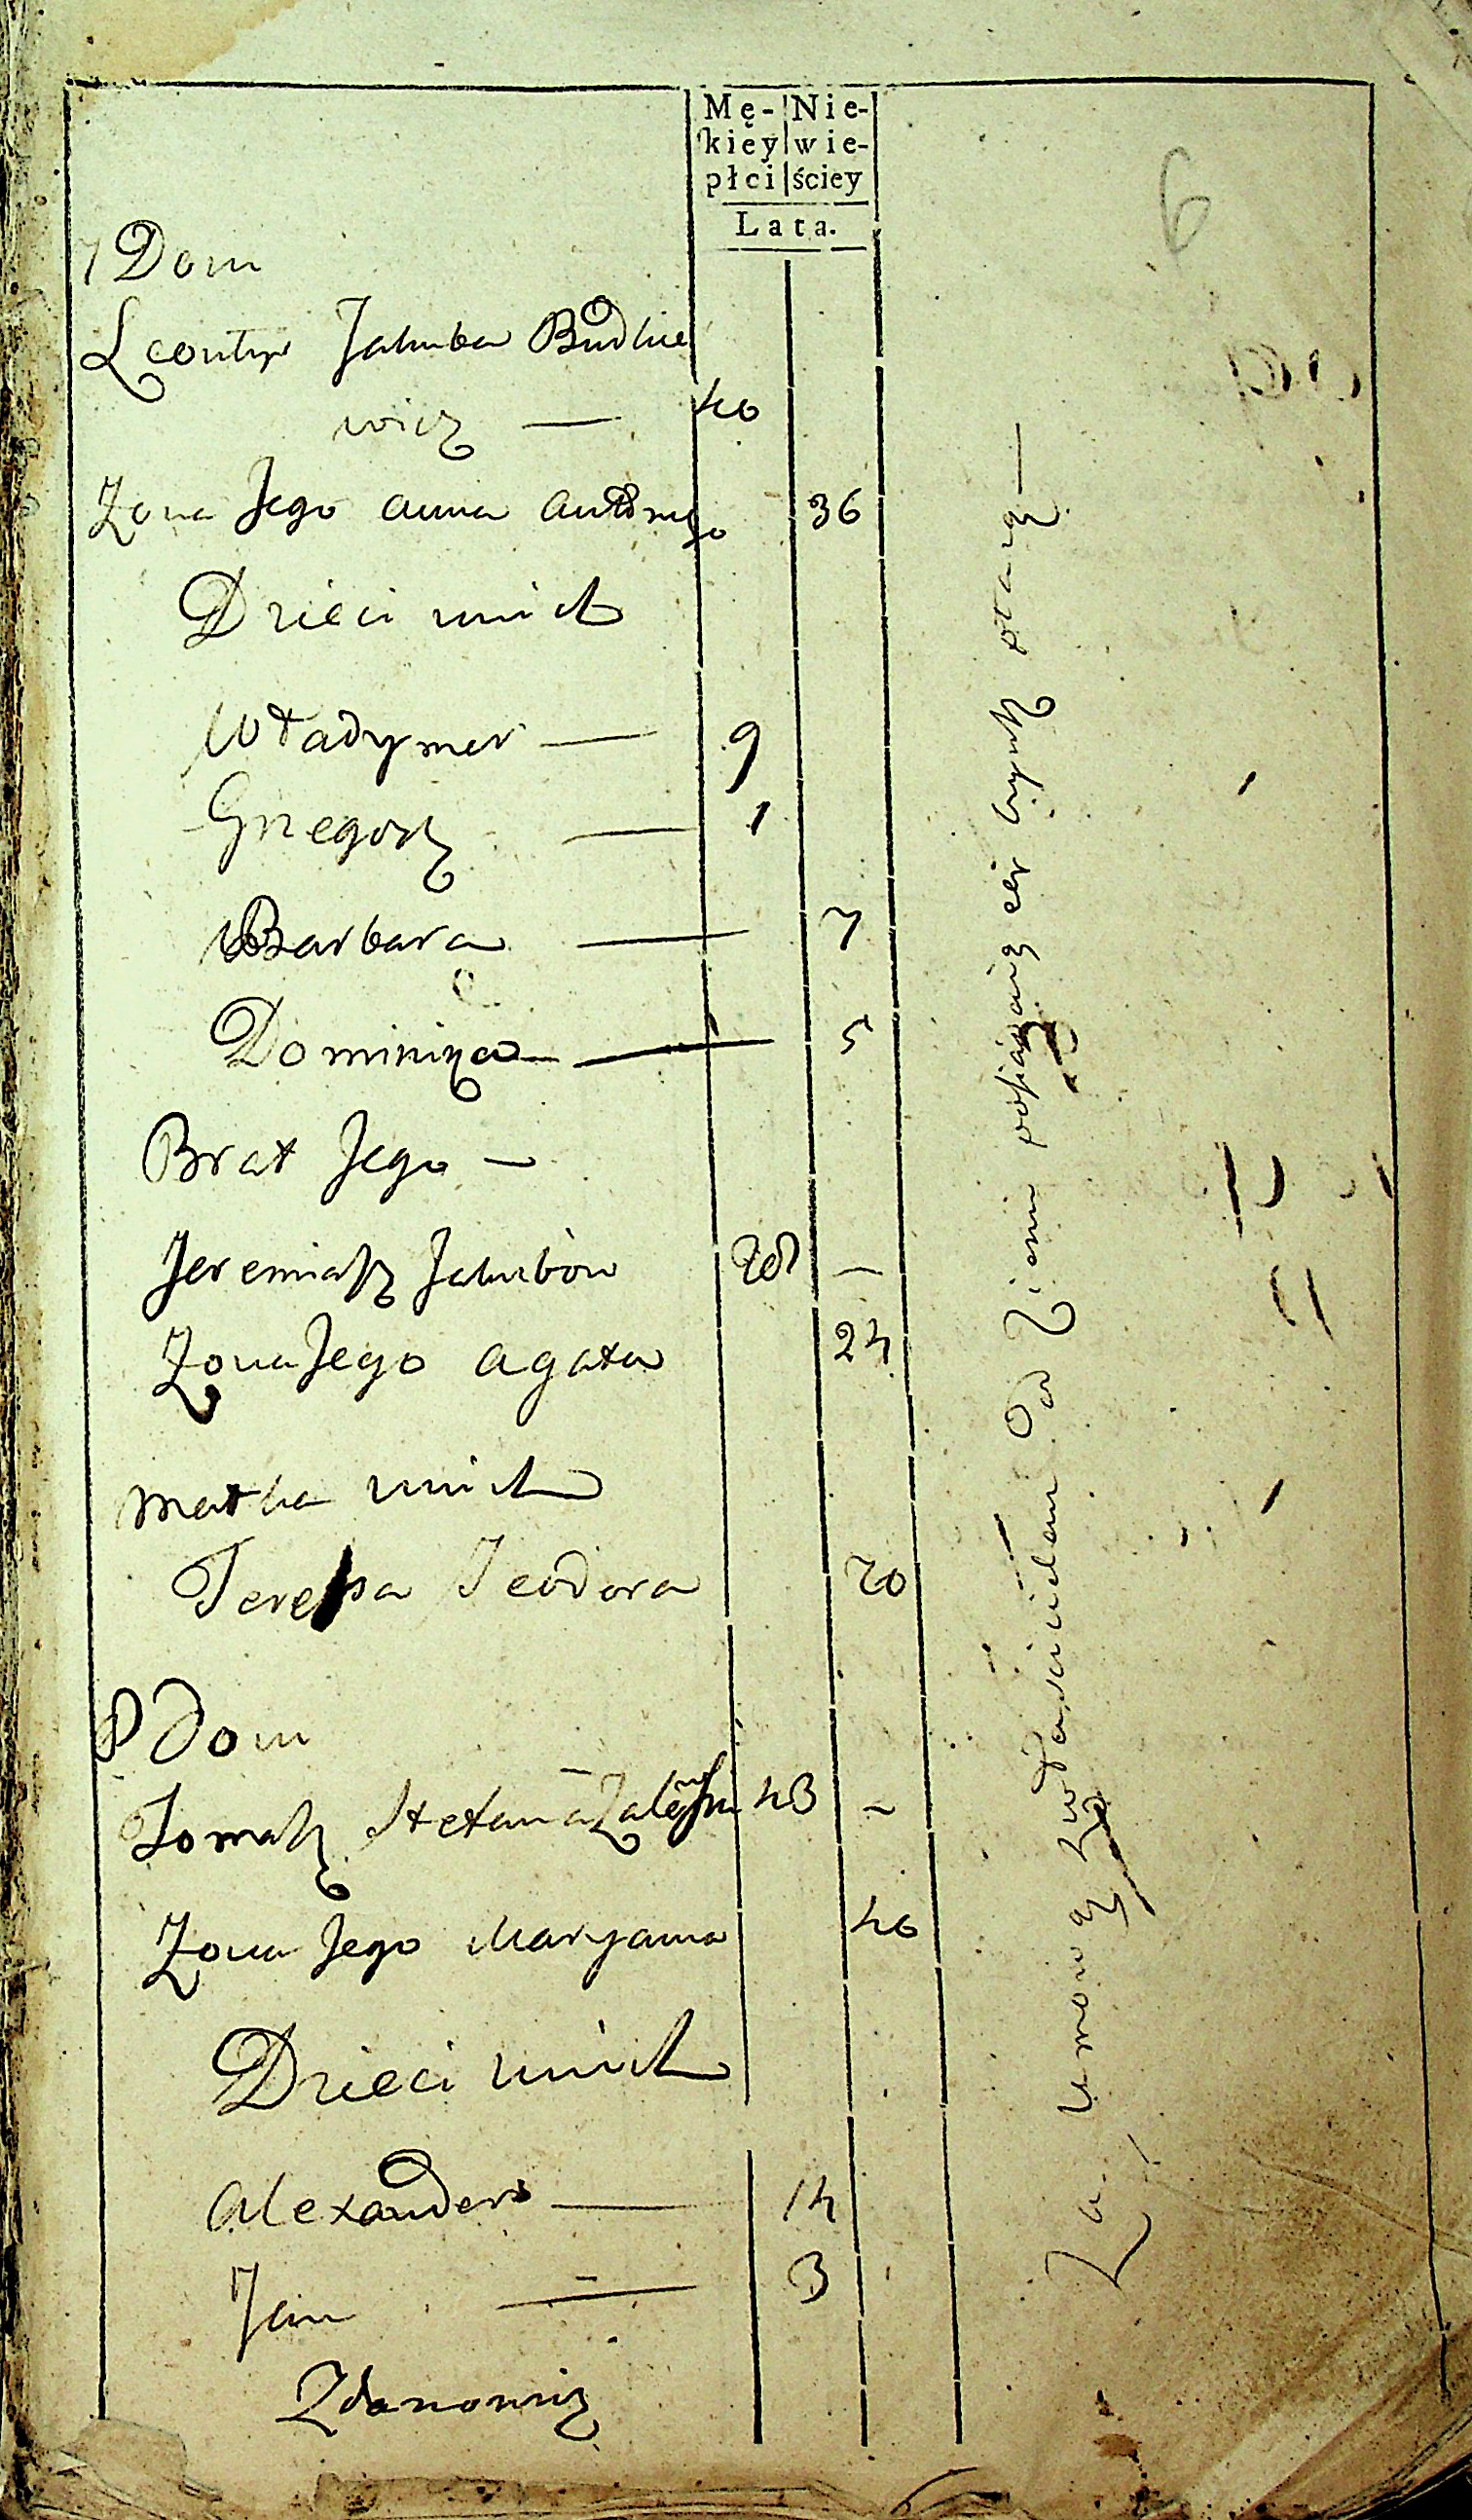 Mę- Nie-
kiey wie-
płci ściey
Lata.
6
7 Dom
Leontyi Jakuba Budkie
wicz — 40
Zona Jego Anna Antoniego 36
Dzieci unich
Władymer — 9
Grzegorz — 1
Barbara — 7
Dominiza — 5
Brat Jego —
Jeremiasz Jakubow 28 —
Zona Jego Agata 24
Matka unich
Teressa Teodora 70
8 Dom
Tomasz Stefana 43 –
Zona Jego Maryanna 40
Dzieci unich
Alexander — 14
Jan — 3
Zdanowicz
Za umową z właścicielem Od Ziemi czynsz płacą —